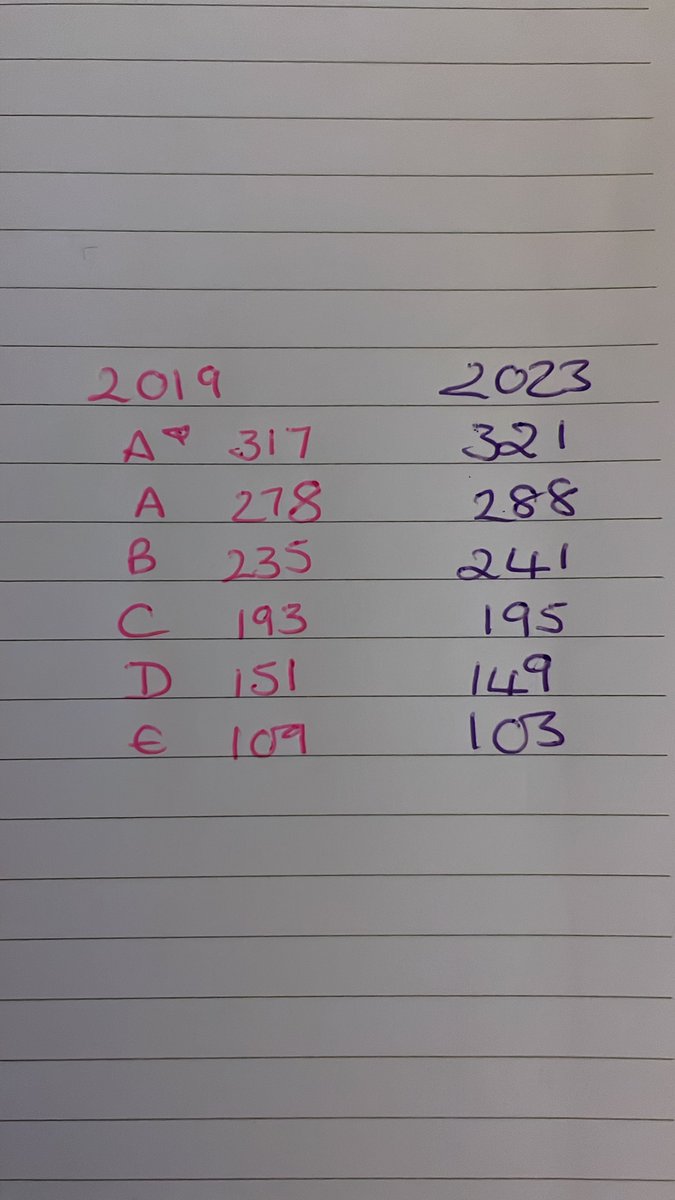 2019 2023
A* 317 321
A 278 288
B 235 241
C 193 195
D 151 149
E 109 103